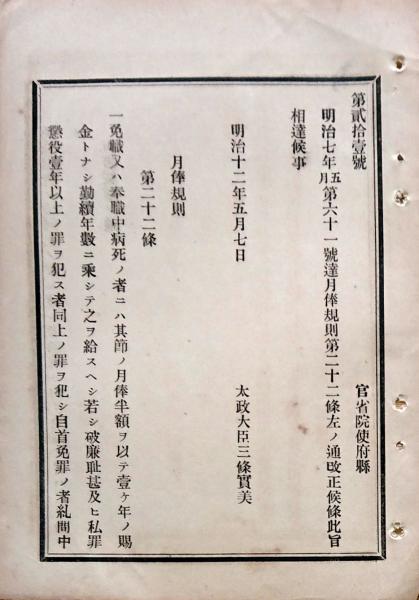 第貳拾壹號
官省院使府縣
明治七年五月第六十一號達月俸規則第二十二條左ノ通改正候條此旨
相達候事
明治十二年五月七日
太政大臣三條實美
月俸規則
第二十二條
一免職又ハ奉職中病死ノ者ニハ其節ノ月俸半額ヲ以テ壹ケ年ノ賜
金トナシ勤續年數ニ乘シテ之ヲ給スヘシ若シ破廉耻甚及ヒ私罪
懲役壹年以上ノ罪ヲ犯ス者同上ノ罪ヲ犯シ自首免罪ノ者糺問中